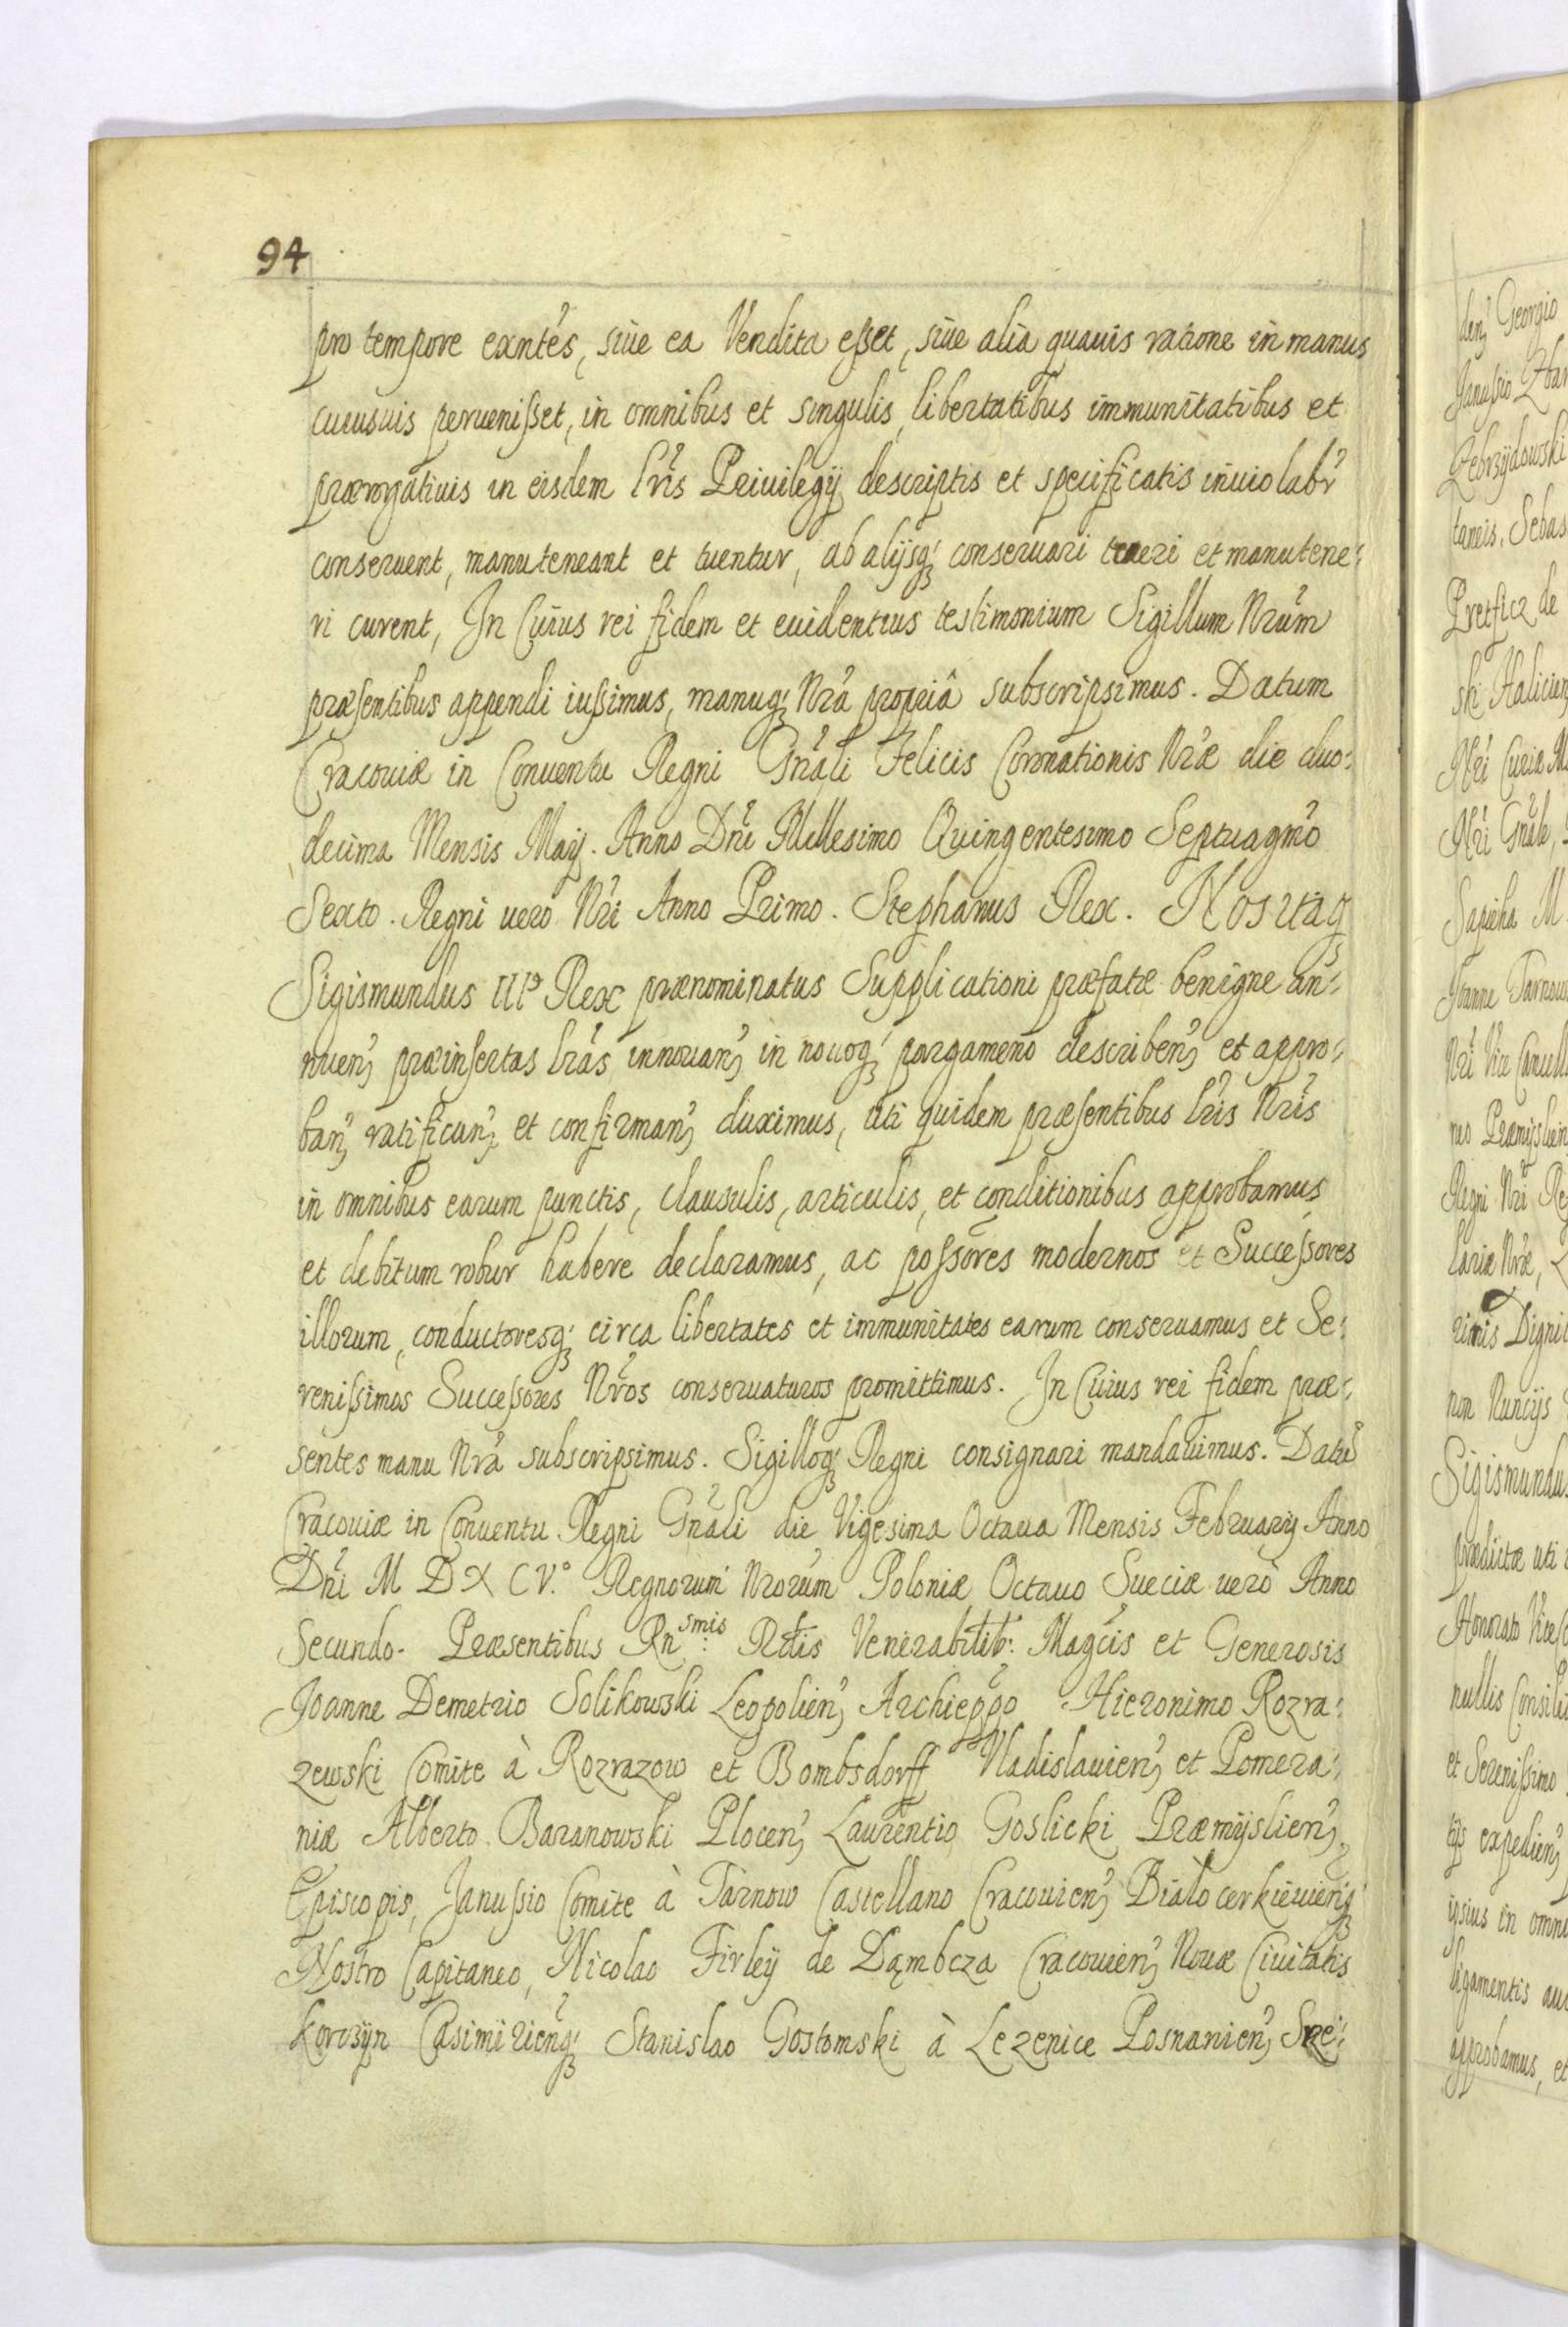 94
pro tempore exntes, siue ea Vendita esset, siue alia quauis ratione in manus
cuiusuis peruenisset, in omnibus et singulis, libertatibus immunitatibus et
prærogatiuis in eisdem lris Priuilegij descriptis et specificatis inuiolabr
conseruent, manuteneant et tuentur, ab alijsq; conseruari tueri et manutene-
ri curent, In Cuius rei fidem et euidentius testimonium Sigillum Nrum
præsentibus appendi iussimus, manuq; Nra propriâ subscripsimus. Datum
Cracouiæ in Conuentu Regni Gnali Felicis Coronationis Nræ die duo-
decima Mensis Maij. Anno Dni Millesimo Quingentesimo Septuagmo
Sexto. Regni uero Nri Anno Primo. Stephanus Rex. Nos itaq
Sigismundus III9 Rex prænominatus Supplicationi præfatæ benigne an-
nuen, præinsertas lras innouan, in nouoq; pargameno describen, et appro-
ban, ratifican, et confirman, duximus, uti quidem præsentibus lris Nris
in omnibus earum punctis, clausulis, articulis, et conditionibus approbamus
et debitum robur habere declaramus, ac possores modernos et Successores
illorum, conductoresq; circa libertates et immunitates earum conseruamus et Se-
renissimos Successores Nros conseruaturos promittimus. In Cuius rei fidem præ-
sentes manu Nra subscripsimus. Sigilloq; Regni consignari mandauimus. Datu
Cracouiæ in Conuentu Regni Gnali die Vigesima Octaua Mensis Februarij Anno
Dni M D X C V.o Regnorum Nrorum Poloniæ Octauo Sueciæ uero Anno
Secundo. Præsentibus Rn smis Rdis Venerabilib: Magcis et Generosis
Joanne Demetrio Solikowski Leopolien, Archieppo Hieronimo Rozra-
zewski Comite à Rozrazow et Bombsdorff Vladislauien, et Pomera-
niæ Alberto Baranowski Plocen, Laurentio Goslicki Præmijslien,
Episcopis, Janussio Comite à Tarnow Castellano Cracouien, Białocerkieuienq;
Nostro Capitaneo, Nicolao Firleij de Dąmbcza Cracouien, Nouæ Ciuitatis
Korczijn Casimirienq; Stanislao Gostomski à Lezenice Posnanien, Sre-
den, Georgio
Janussio Zbar
Zebrzijdowski
taneis, Sebas
Pretficz de
ski Halicien
Nri Curiæ M
Nri Gnali,
Sapieha M
Joanne Tarnow
Nri Vice Cancell
neo Præmijslien
Regni Nri Re
lariæ Nræ,
rimis Digni
non Nuncijs
Sigismundus
prædictæ uti
Honorato Vice
nullis Consili
et Serenissimo
tijs expedien,
ipsius in omni
ligamentis
approbamus, et